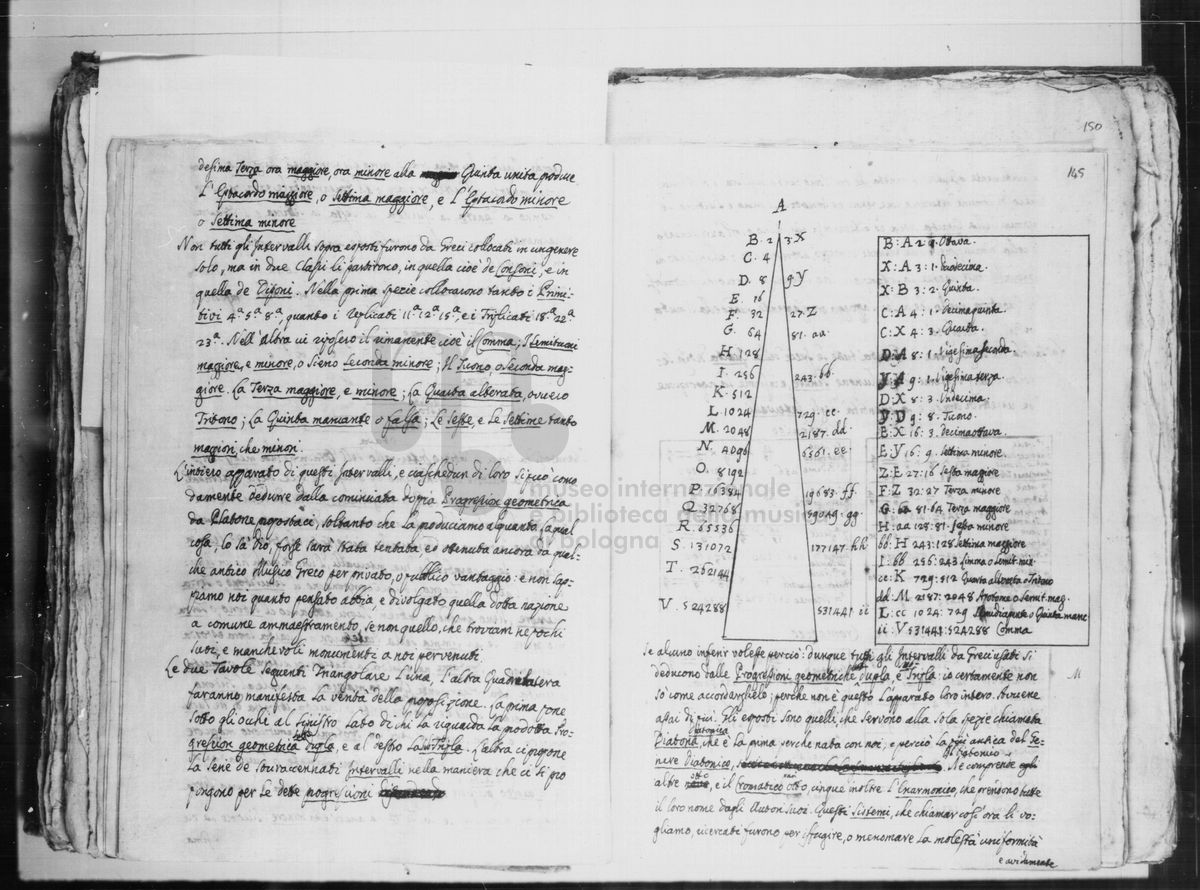 desima Terza ora maggiore, ora minore alla Quinta unita produce
L'Eptacordo maggiore, o Settima maggiore, e L'Eptacordo minore
o Settima minore
Non tutti gli Intervalli sopra esposti furono da Greci collocati in un genere
solo, ma in due Classi li partirono, in quella cioè de Consoni, e in
quella de Dissoni. Nella prima spezie collocarono tanto i Primi-
tivi 4ª 5ª 8ª, quanto i Replicati 11ª 12ª 15ª, e i Triplicati 18ª 22ª
23ª. Nell'altra vi riposero il rimanente cioè il Comma; I Semituoni
maggiore, e minore, o sieno Seconda minore; Il Tuono, o Seconda mag-
giore. La Terza maggiore, e minore; La Quarta alterata, ovvero
Tritono; La Quinta mancante o falsa; Le Seste, e Le Settime tanto
maggiori, che minori.
L'intiero apparato di questi Intervalli, e caschedun di loro si può como
damente dedurre dalla continuata dopia Progression geometrica
da Platone propostaci, soltanto che La produciamo alquanto, La qual
cosa, lo sa Dio, forse sarà stata tentata ed ottenuta ancora da qual-
che antico Musico Greco per privato, o publico vantaggio: e non sap-
piamo noi quanto pensato abbia, e divolgato quella dotta nazione
a comune ammaestramento, se non quello, che troviam ne pochi
suoi, e manchevoli monumenti a noi pervenuti.
Le due Tavole seguenti Triangolare L'una, L'altra Quadrilatera
faranno manifesta La verità della proposizione. La prima pone
sotto gli occhi al sinistro Lato di chi La riguarda La prodotta Pro-
gression geometrica dupla, e al destro La Tripla. L'altra ci espone
La serie de sovraccennati Intervalli nella maniera che ci si pro
pongono per Le dette progressioni
150
145
A
B. 2 3 X
C. 4
D. 8 9 y
E. 16
F. 32 27. Z
G. 64 81. aa
H 128
I. 256 243. bb
K. 512
L. 1024 729. cc
M. 2048 2187. dd
N. 4096 6561. ee
O. 8192
P. 16384 19683. ff
Q. 32768 59049. gg
R. 65536
S. 131072 177147. hh
T. 262144
V. 524288 531441 ii
B: A 2 1. Ottava.
X: A 3: 1. Duodecima.
X: B 3: 2. Quinta.
C: A 4: 1. Decimaquinta.
C: X 4: 3. Quarta.
D: A 8: 1. Vigesima seconda.
y: A 9: 1. Vigesima terza.
D: X 8: 3. Undecima.
y: D 9: 8. Tuono.
E: X 16: 3. Decimaottava.
E: y 16: 9. Settima minore
Z: E 27: 16 Sesta magiore
F: Z 32: 27 Terza minore
G: aa 81: 64 Terza maggiore
H: aa 128: 81. Sesta minore
bb: H 243: 128 Settima maggiore
I: bb 256: 243 Limma o Semit. min.
cc: K 729: 512 Quarta alterata o Tritono
dd: M 2187: 2048 Apotome o Semit. mag.
L: cc 1024: 729 Semidiapente o Quinta manc
ii: V 531441: 524288 Comma
Se alcuno inferir volesse perciò: dunque tutti gli Intervalli da Greci usati si
deducono dalle Progressioni geometriche dupla, e Tripla: io certamente non
so come accordarglielo; perchè non è questo L'apparato loro intero. Avviene
assai di più. Gli esposti sono quelli, che servono alla sola spezie chiamata
Diatona, diatonica che è La prima perchè nata con noi, e perciò La più antica del Ge-
nere Diatonico, Ne comprende egli
altre otto, e il Cromatico otto, cinque inoltre L'Enarmonico, che prendono tutte
il loro nome dagli Autori suoi. Questi Sistemi, che chiamar così ora li vo-
gliamo, ricercati furono per isfugire, o menomare La molesta uniformità
e avidamente